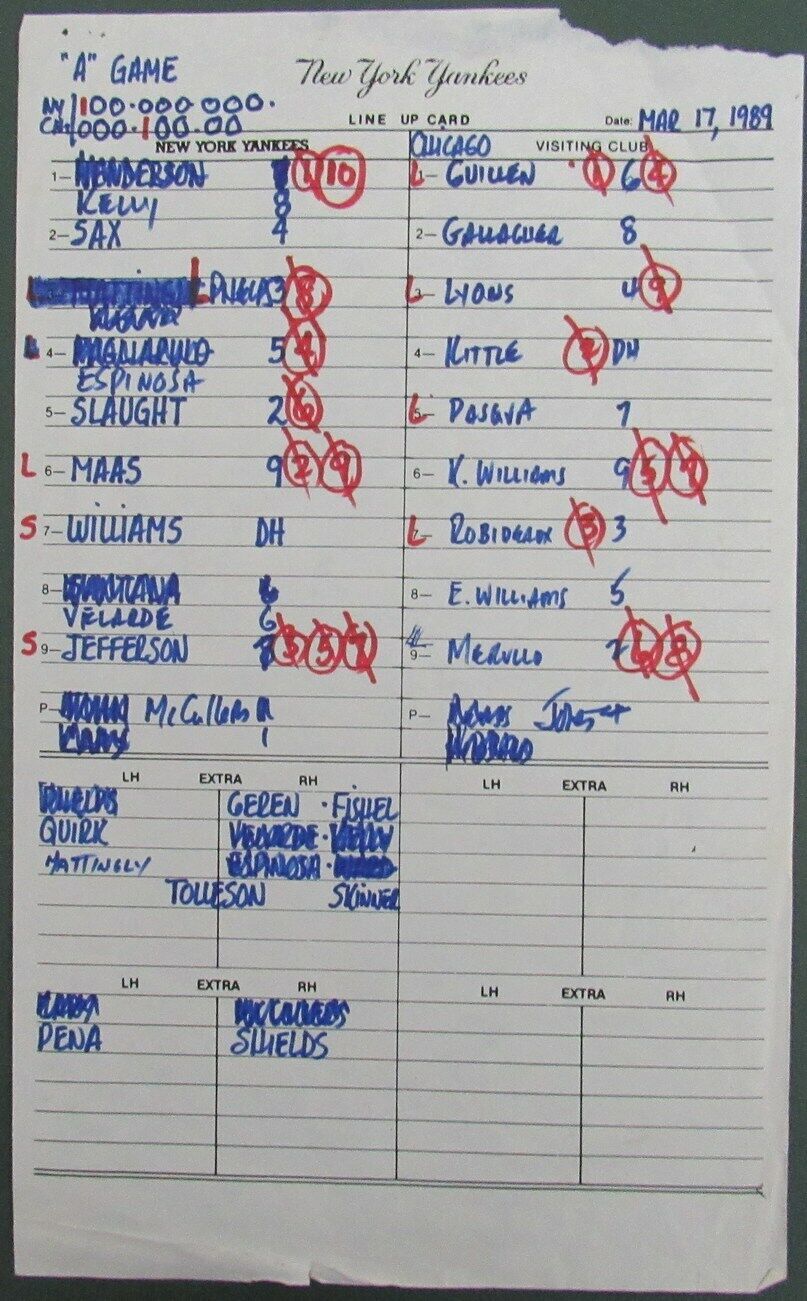 "A" GAME
New York Yankees
NY 100·000 000·
CHI 000·100·00
LINE UP CARD
Date: MAR 17, 1989
NEW YORK YANKEES
1- HENDERSON 1 10
KELLY 8
2- SAX 4
L MATTINGLY L 3 8
4- PAGLIARULO 5 4
ESPINOSA
5- SLAUGHT 2 6
L 6- MAAS 9 2 9
S 7- WILLIAMS DH
8- SANTANA 6
VELARDE 6
S 9- JEFFERSON 3 5 7
P- McCullers
1
CHICAGO VISITING CLUB
L 1- GUILLEN 1 6 4
2- GALLAGHER 8
L 3- LYONS 4 9
4- KITTLE 2 DH
L 5- PASQUA 7
6- K. WILLIAMS 9 5 7
L 7- ROBIDEAUX 3 3
8- E. WILLIAMS 5
9- MERULLO 2 6 8
P- JONES
LH EXTRA RH
GEREN · FISHEL
QUIRK VELARDE · KELLY
MATTINGLY ESPINOSA ·
TOLLESON SKINNER
LH EXTRA RH
LH EXTRA RH
McCULLERS
PENA SHIELDS
LH EXTRA RH